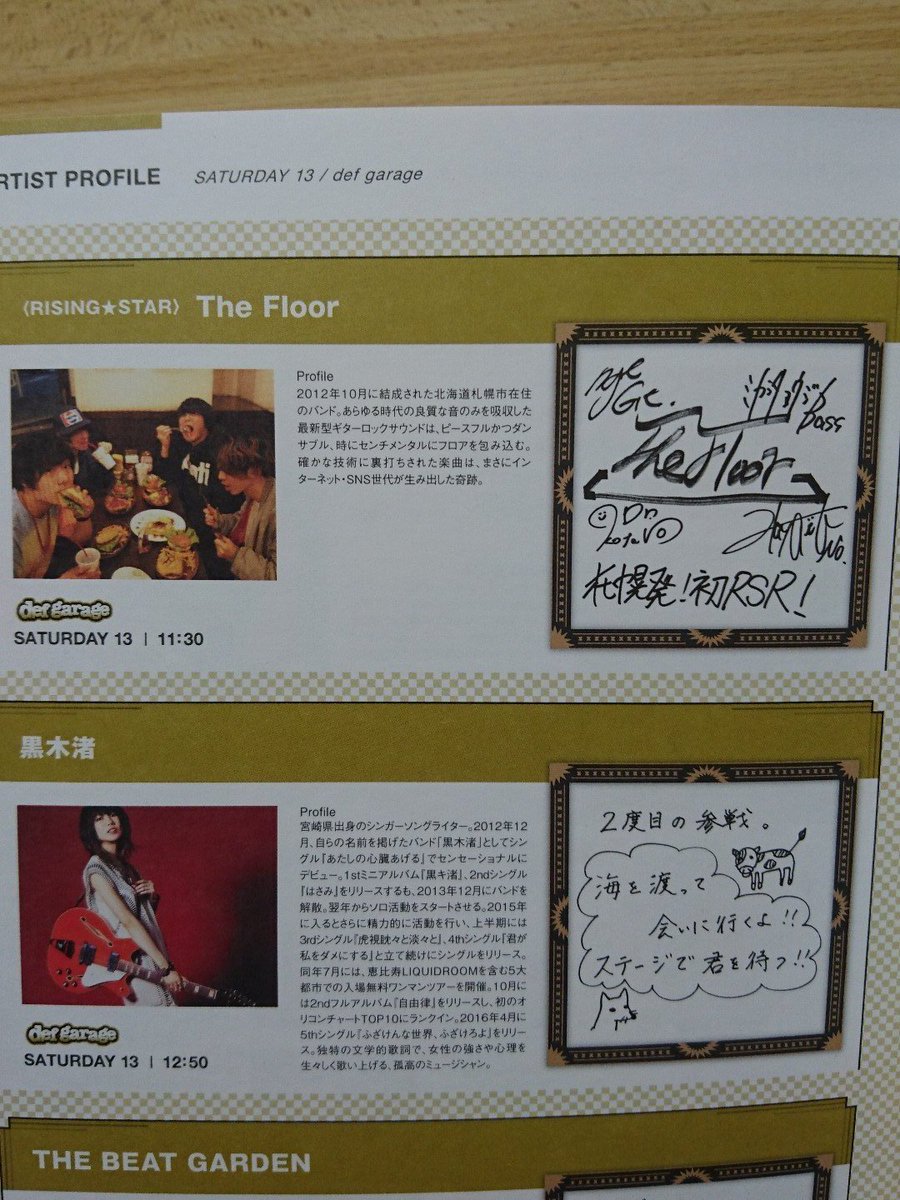 RTIST PROFILE SATURDAY 13 / def garage
〈RISING★STAR〉 The Floor
Profile
2012年10月に結成された北海道札幌市在住
のバンド。あらゆる時代の良質な音のみを吸収した
最新型ギターロックサウンドは、ピースフルかつダン
サブル、時にセンチメンタルにフロアを包み込む。
確かな技術に裏打ちされた楽曲は、まさにインター
ネット・SNS世代が生み出した奇跡。
def garage
SATURDAY 13 | 11:30
Gt.
Bass
The Floor
Dr
Vo.
札幌発!初RSR!
黒木渚
Profile
宮崎県出身のシンガーソングライター。2012年12
月、自らの名前を掲げたバンド「黒木渚」としてシン
グル『あたしの心臓あげる』でセンセーショナルに
デビュー。1stミニアルバム『黒キ渚』、2ndシングル
『はさみ』をリリースするも、2013年12月にバンドを
解散。翌年からソロ活動をスタートさせる。2015年
に入るとさらに精力的に活動を行い、上半期には
3rdシングル『虎視眈々と淡々と』、4thシングル『君が
私をダメにする』と立て続けにシングルをリリース。
同年7月には、恵比寿LIQUIDROOMを含む5大
都市での入場無料ワンマンツアーを開催。10月に
は2ndフルアルバム『自由律』をリリースし、初のオ
リコンチャートTOP10にランクイン。2016年4月に
5thシングル『ふざけんな世界、ふざけろよ』をリリー
ス。独特の文学的歌詞で、女性の強さや心理を
生々しく歌い上げる、孤高のミュージシャン。
def garage
SATURDAY 13 | 12:50
2度目の参戦。
海を渡って
会いに行くよ!!
ステージで君を待つ!!
THE BEAT GARDEN